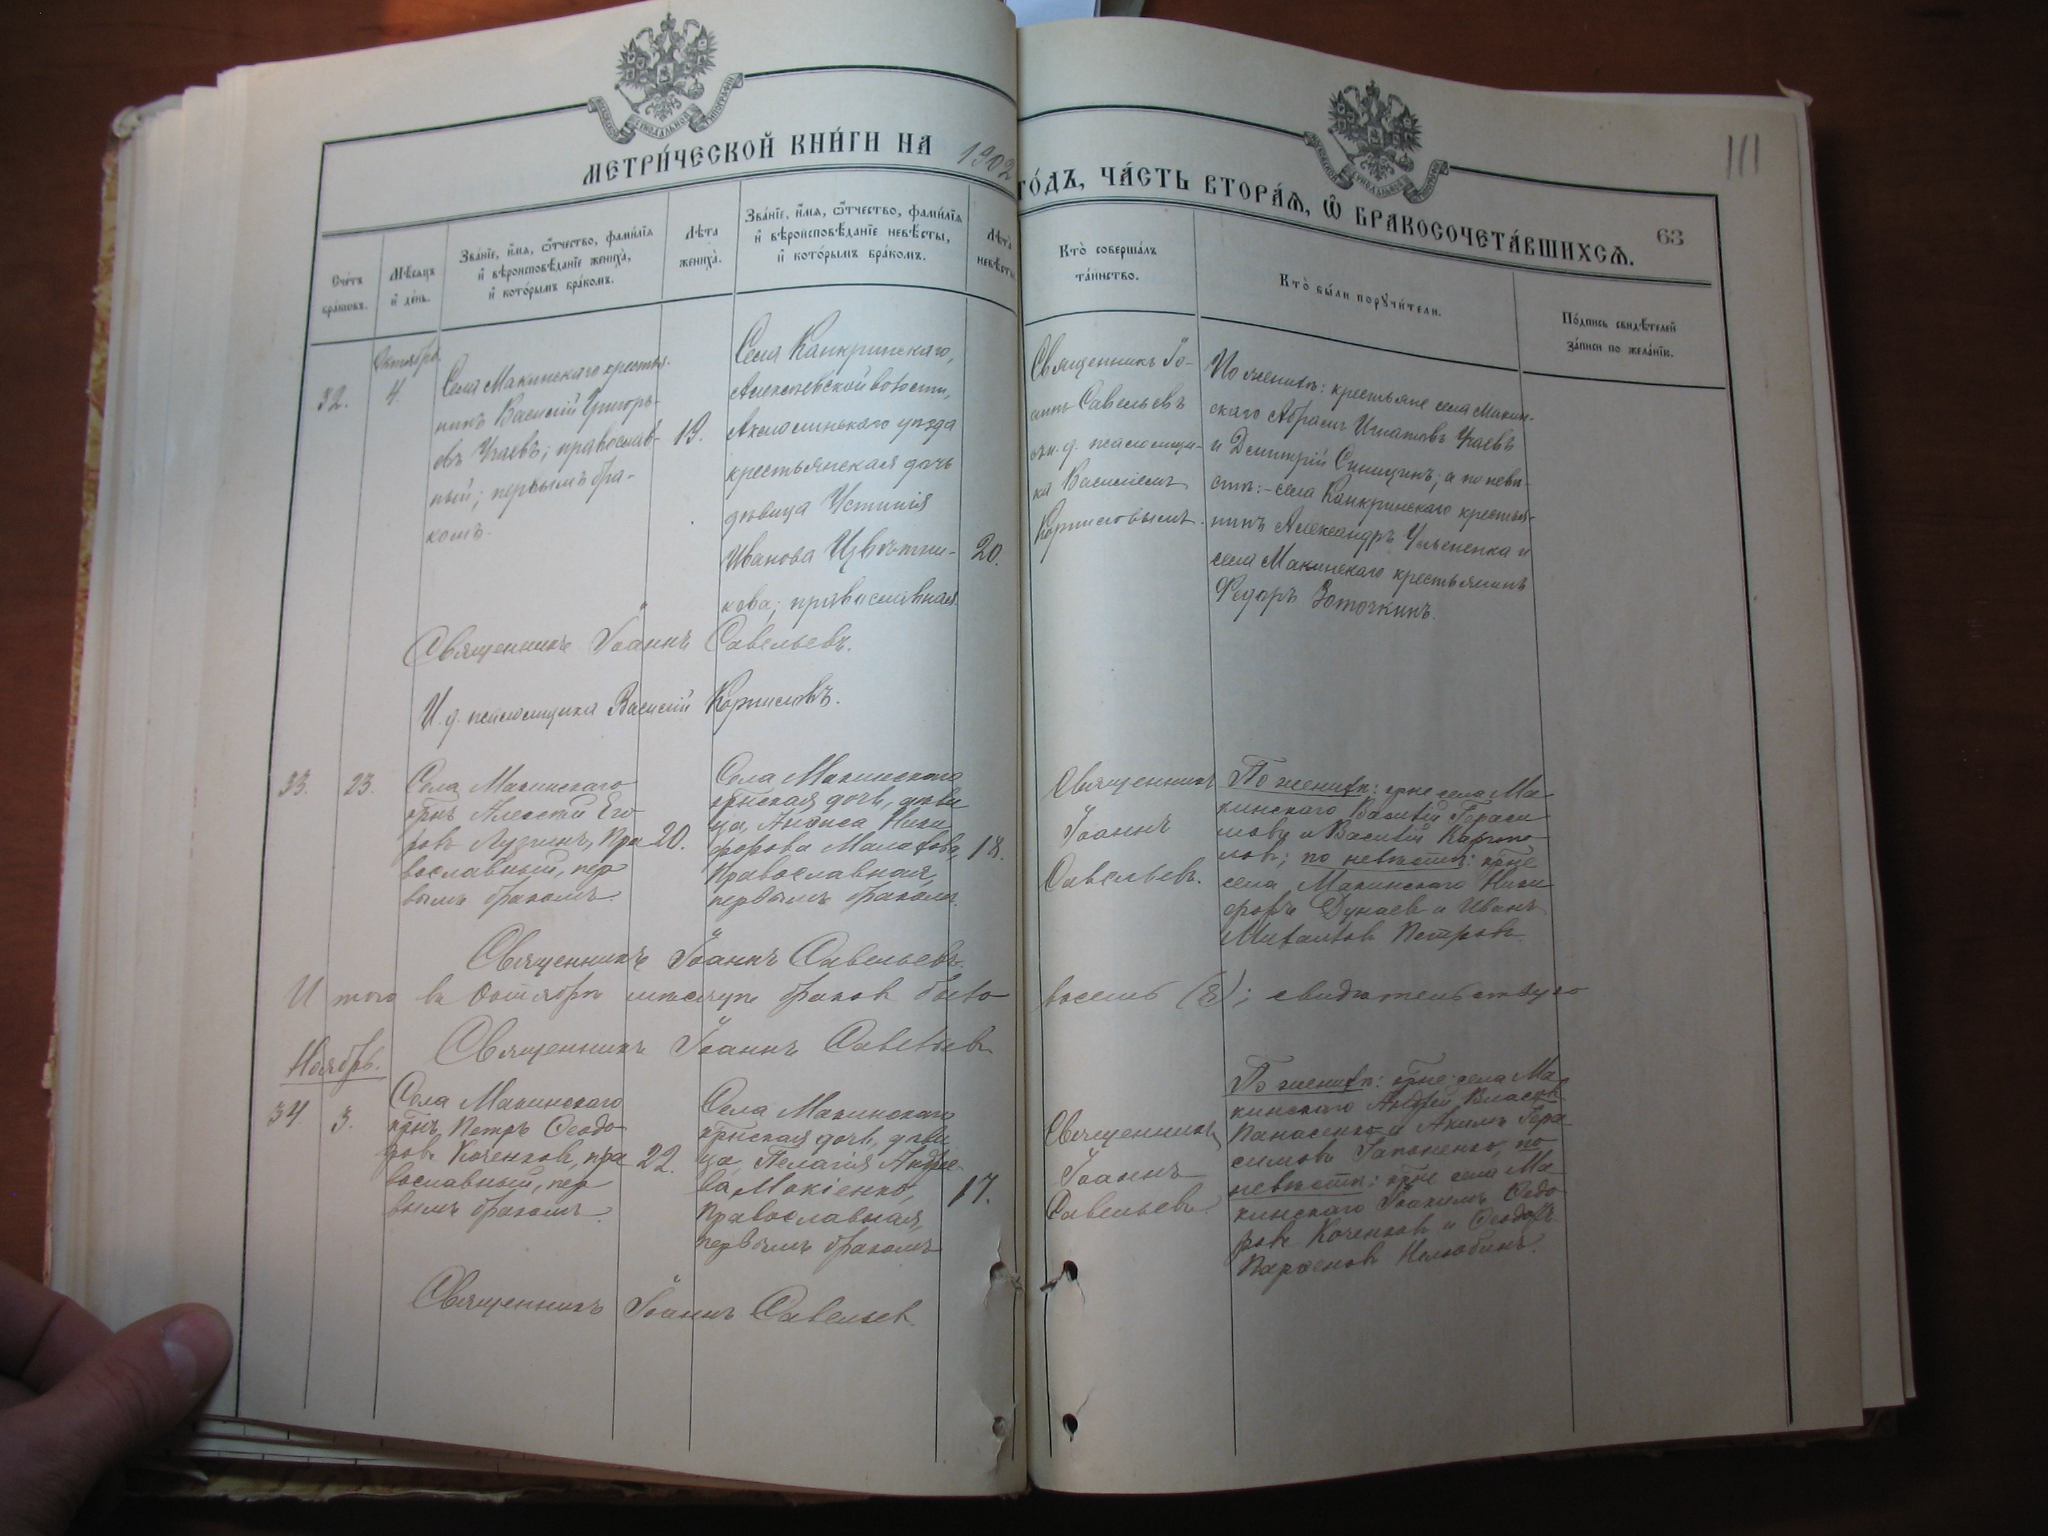 МЕТРИ́ЧЕСКОЙ КНИ́ГИ НА 1902
ГО́ДЪ, ЧА́СТЬ ВТОРА́Ѧ, Ѽ БРАКОСОЧЕТА́ВШИХСѦ.
111
63
Сче́тъ
бра́ковъ.
Мѣ́сѧцъ
и҆ де́нь.
Зва́нїе, и҆́мѧ, ѻ҆́тчество, фами́лїѧ
и҆ вѣроисповѣ́данїе жениха̀,
и҆ кото́рымъ бра́комъ.
Лѣ́та
жениха̀.
Зва́нїе, и҆́мѧ, ѻ҆́тчество, фами́лїѧ
и҆ вѣроисповѣ́данїе невѣ́сты,
и҆ кото́рымъ бра́комъ.
Лѣ́та
невѣ́сты
Кто̀ соверша́лъ
та́инство.
Кто̀ бы́ли порꙋчи́тели.
По́дпись свидѣ́телей
за́писи по жела́нїю.
Октябрь
32.
4.
Села Макинскаго крестья-
нинъ Василій Григорь-
евъ Угаевъ; православ-
ный; первымъ бра-
комъ.
19.
Села Канкринскаго,
Алексѣевской волости,
Акмолинскаго уѣзда
крестьянская дочь
дѣвица Устинія
Иванова Цвѣтни-
кова; православная
20.
Священникъ Іо-
аннъ Савельевъ
и. д. псаломщи-
ка Василіемъ
Корниловымъ.
По женихѣ: крестьяне села Макин-
скаго Абрамъ Игнатовъ Угаевъ
и Димитрій Синицинъ; а по невѣ-
стѣ:- села Канкринскаго крестья-
нинъ Александръ Ульененка и
села Макинскаго крестьянинъ
Федоръ Золочкинъ.
Священникъ Іоаннъ Савельевъ.
И. д. псаломщика Василій Корниловъ.
33.
23.
Села Макинскаго
крнъ Алексѣй Его-
ровъ Лузгинъ, Пра
вославный, пер
вымъ бракомъ.
20.
Села Макинскаго
крнская дочь, дѣви
ца, Анфиса Ники
форова Малахова,
Православная,
первымъ бракомъ.
18.
Священникъ
Іоаннъ
Савельевъ.
По женихѣ: крне села Ма-
кинскаго Василій Гераси
мовъ и Василій Карпи-
ловъ; по невѣстѣ: крне
села Макинскаго Ники
форъ Дунаев и Иванъ
Михаиловъ Петровъ
Священникъ Іоаннъ Савельевъ.
Итого въ Октябрѣ мѣсяцѣ браков было восемь (8); свидѣтельствую
Священникъ Іоаннъ Савельевъ
Ноябрь.
34
3.
Села Макинскаго
крнъ Петръ Ѳеодо
ровъ Коченков, пра
вославный, пер
вымъ бракомъ.
22.
Села Макинскаго
крнская дочь, дѣви
ца Пелагія Андрее-
ва Мокіенко,
Православная,
первымъ бракомъ
17.
Священникъ
Іоаннъ
Савельевъ.
По женихѣ: крне села Ма-
кинскаго Андрей Власовъ
Панасенко и Акимъ Гера-
симовъ Гапоненко, по
невѣстѣ: крне села Ма-
кинскаго Іоакимъ Ѳедо
ровъ Коченков и Ѳеодоръ
Парѳенов Нелюбинъ.
Священникъ Іоаннъ Савельев